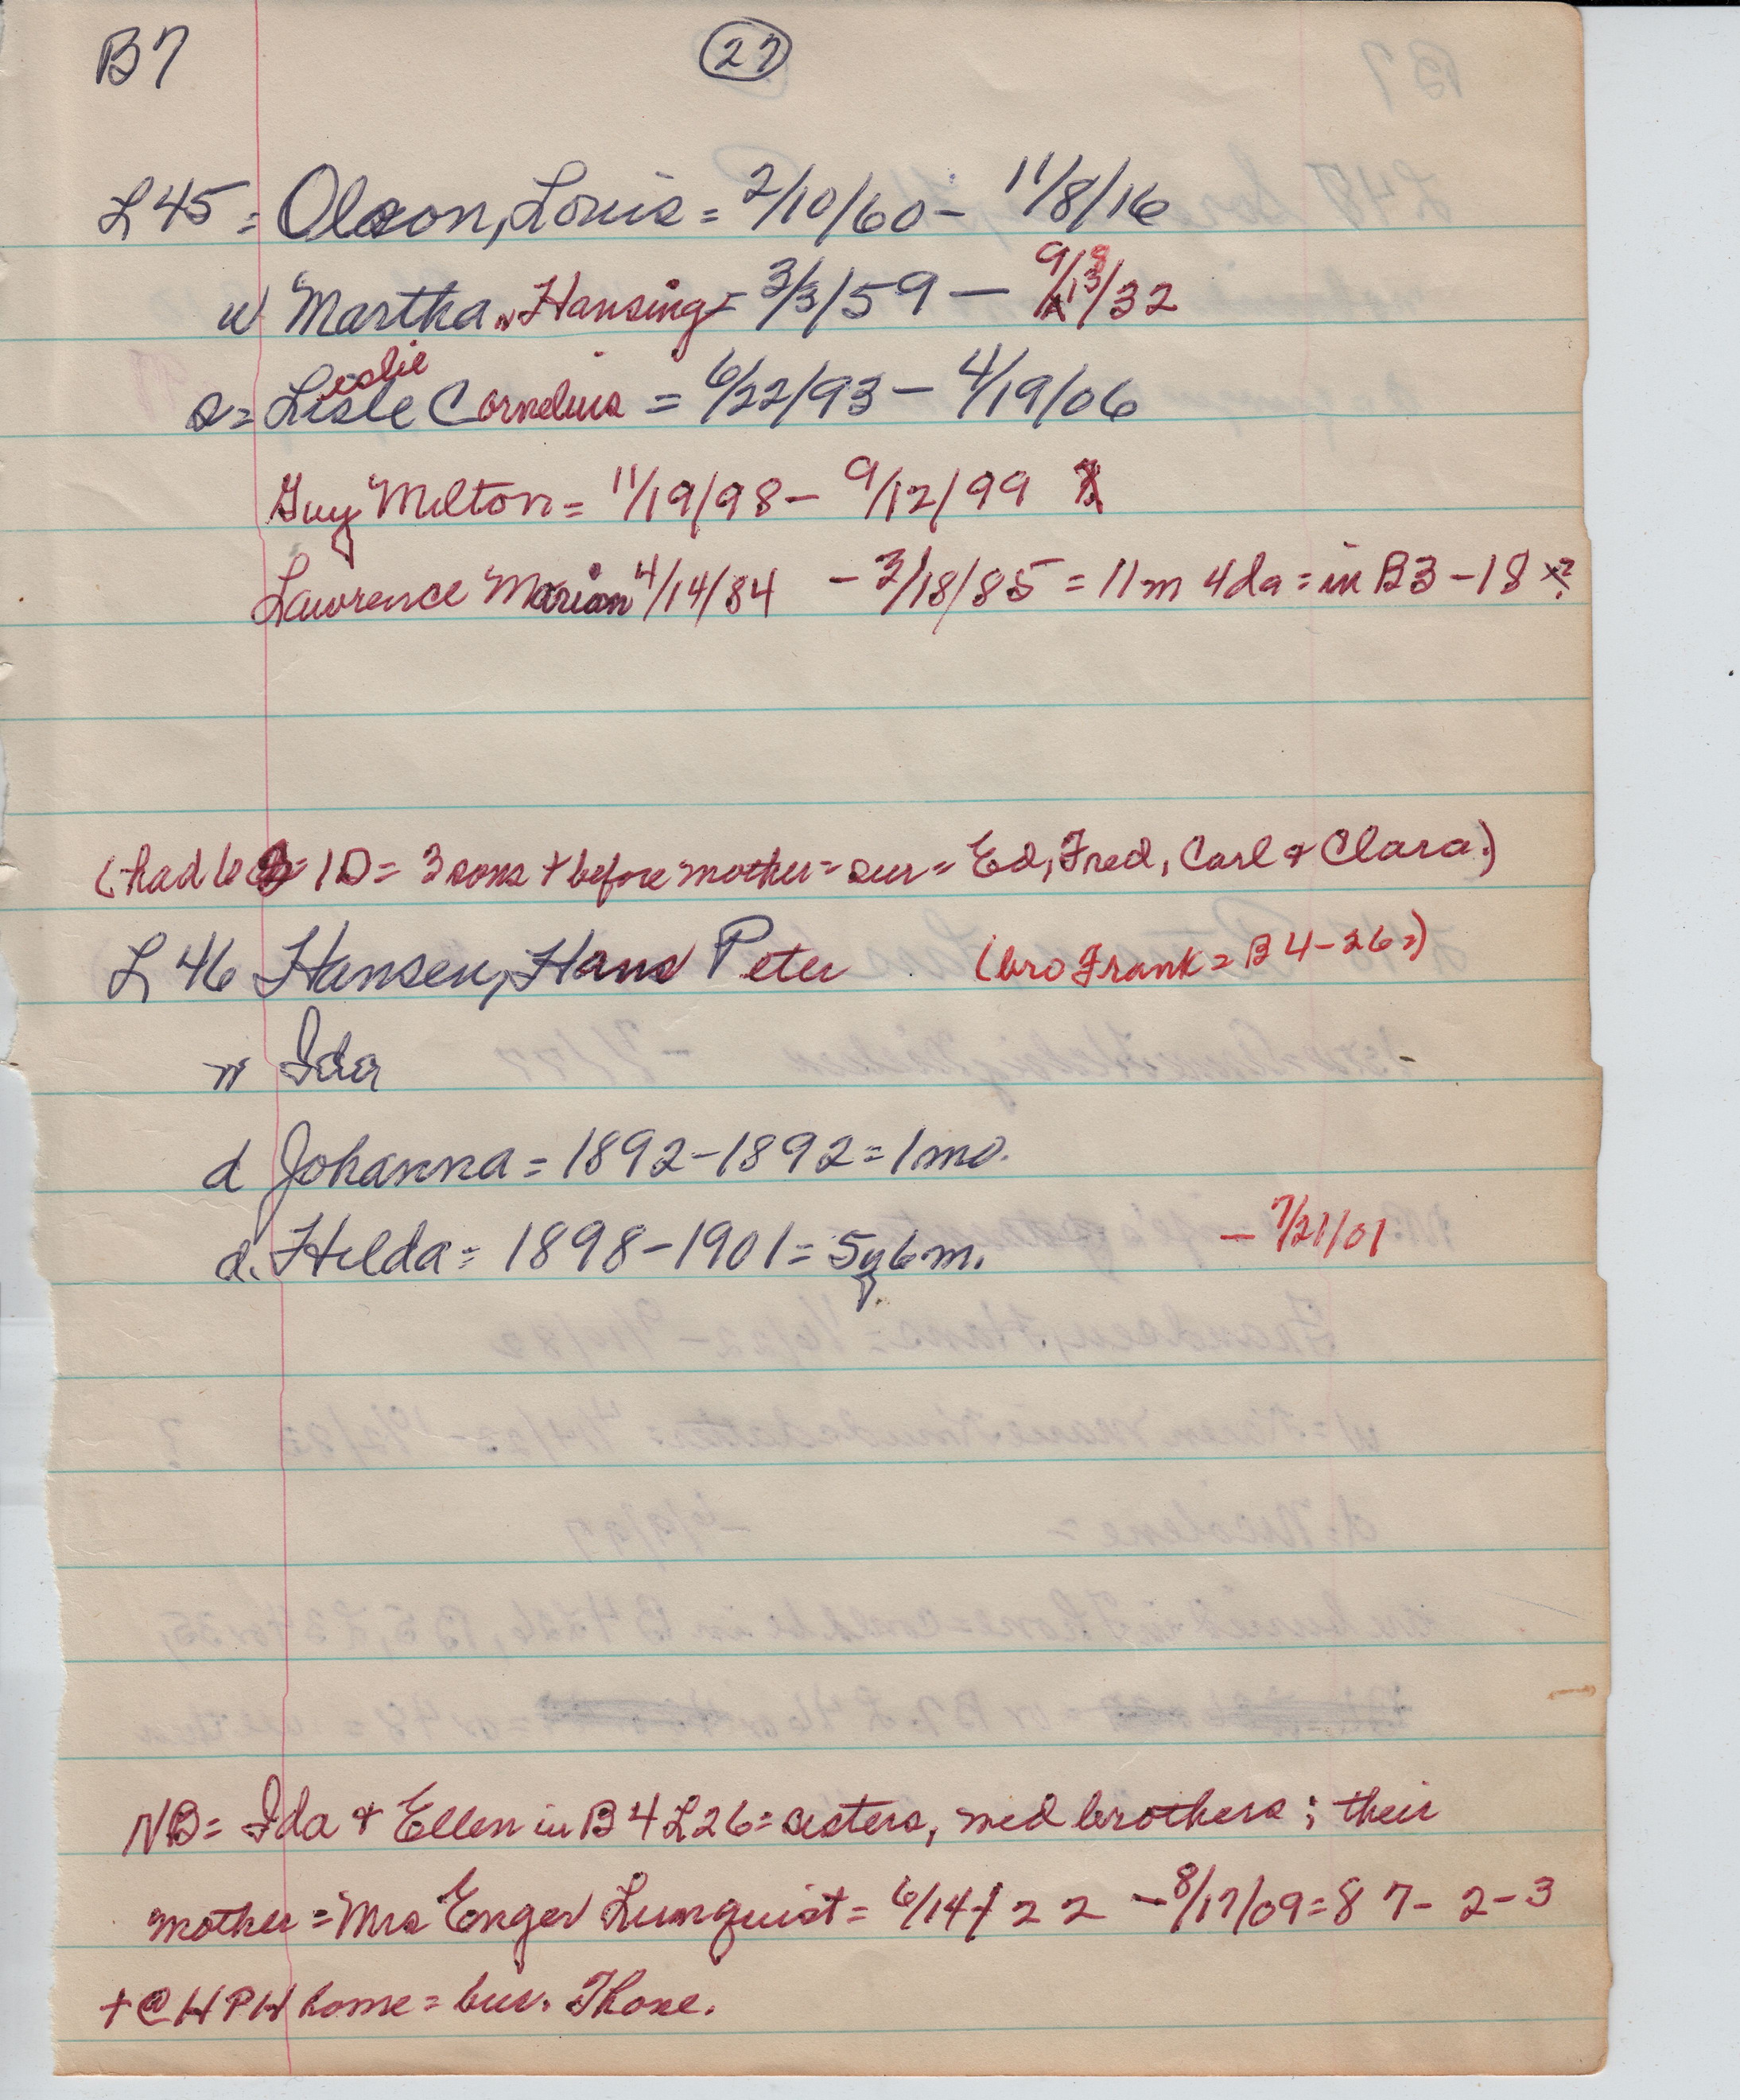 B7 27
L 45 = Olson, Louis = 2/10/60 - 11/8/16
w Martha Hansing = 3/3/59 - 9/13/32
s = Lisle Leslie Cornelius = 6/22/93 - 4/19/06
Guy Milton = 11/19/98 - 9/12/99
Lawrence Marion 4/14/84 - 3/18/85 = 11m 4da = in B3 - 18 x?
(had 6 = 1D = 3 sons + before mother = sur = Ed, Fred, Carl & Clara.)
L 46 Hansen, Hans Peter (bro Frank = B 4 - 26 =)
w Ida
d Johanna = 1892 - 1892 = 1 mo.
d. Hilda = 1898 - 1901 = 5y 6m. - 7/21/01
NB = Ida & Ellen in B 4 L 26 = sisters, med brothers; their
mother = Mrs Enger Lunquist = 6/14/22 - 8/17/09 = 87 - 2 - 3
+ @ HPH home = bur. Thone.